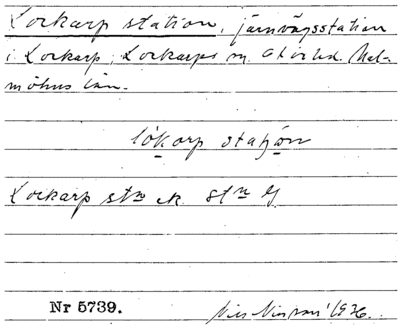 Lockarp station, järnvägsstation
i Lockarp, Lockarps sn. Oxie hd. Mal-
möhus län.
lȯkarp staʃọn
Lockarp stn ek. stn Gj
Nr 5739. Nils Nilsson 1936.